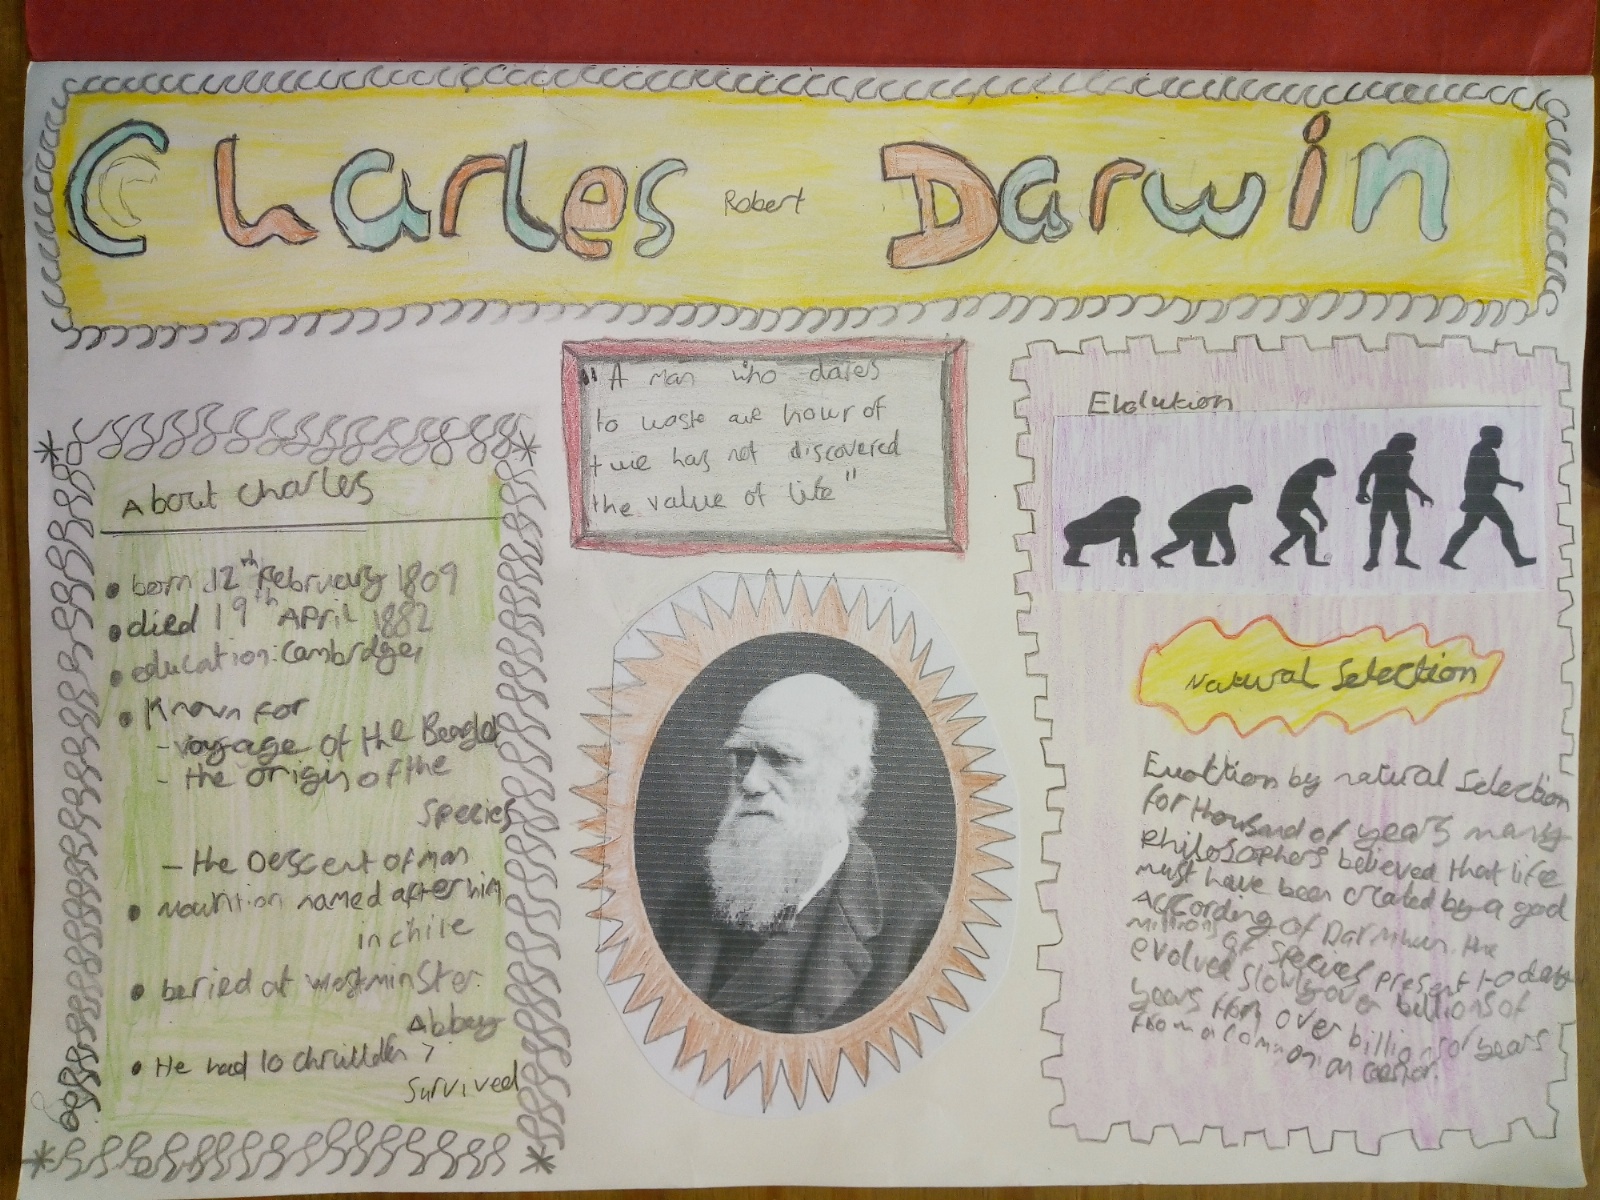 Charles Robert Darwin
"A man who dares
to waste one hour of
time has not discovered
the value of life"
About Charles
• born 12th February 1809
• died 19th April 1882
• education: Cambridge,
• Known for
- voyage of the Beagle
- the origin of the
Species
- the Descent of man
• mountion named after him
in chile
• beried at westminster.
Abbey
• He had 10 chrillden 7
survived
Evolution
Natural Selection
Evoltion by natural selection
for thousand of years many
Philosophers believed that life
must have been created by a god
According of Darwin. the
millions of species present to day
evolved slowly over billions of
years from over billions of years
from a common ancestor.